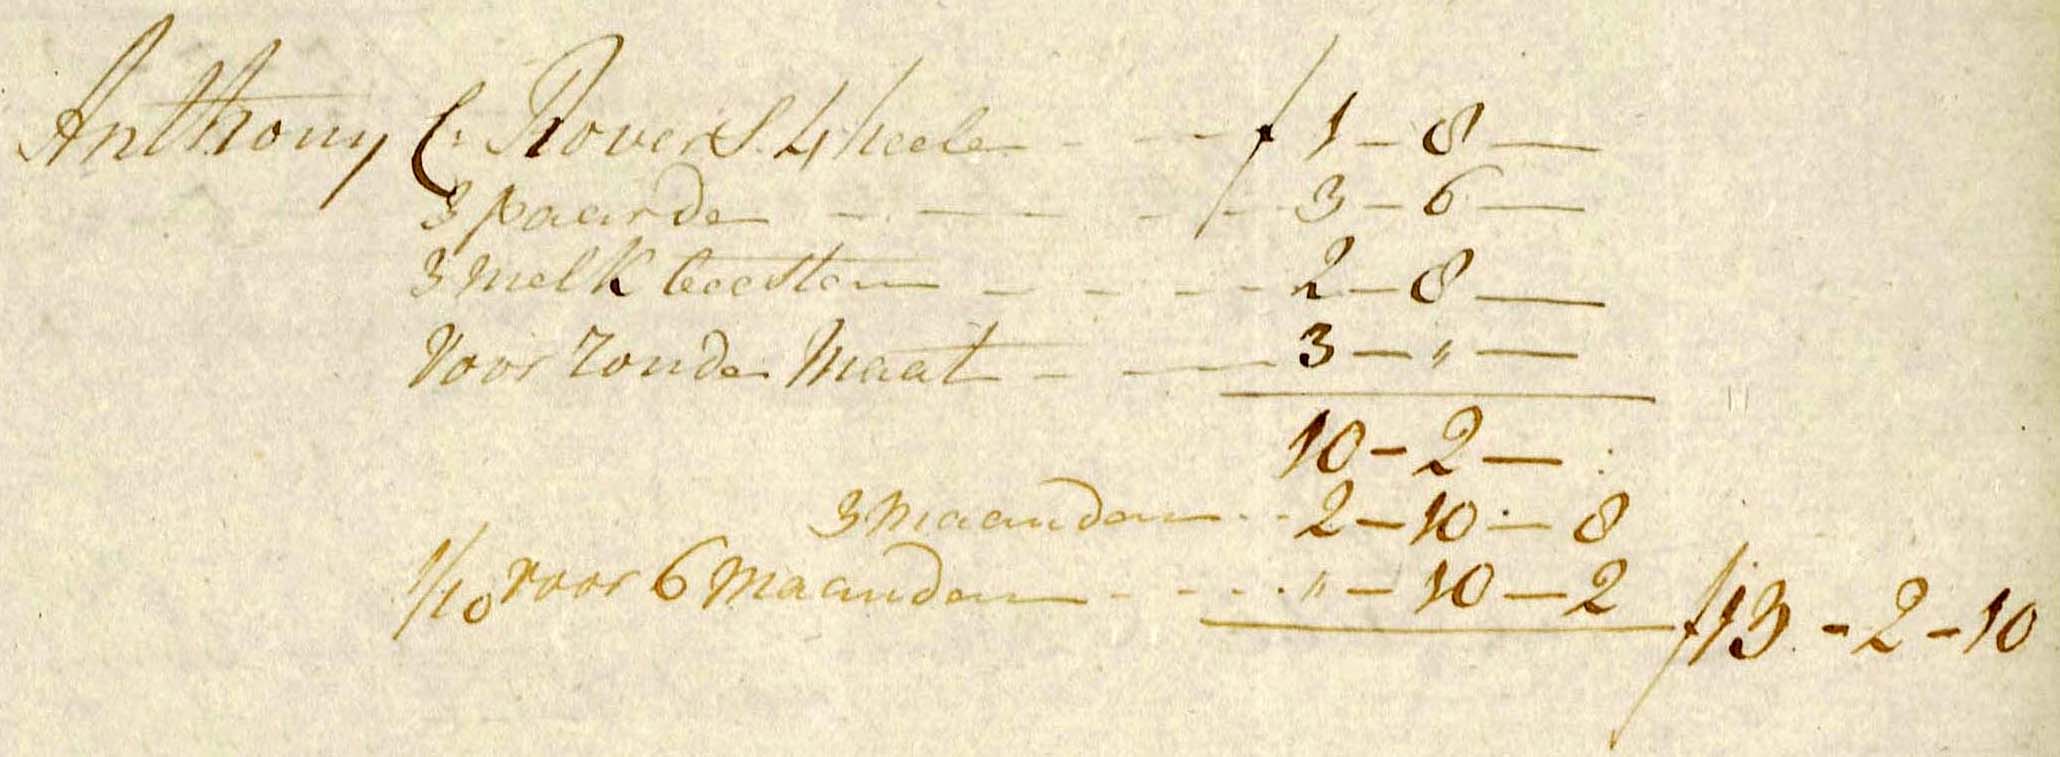 Anthony C: Rovers. 4 heele - - - f 1 - 8 -
3 paarde - - - - - - 3 - 6 -
3 melk beesten - - - - 2 - 8 -
Voor ronde Maat - - 3 - " -
10 - 2 -
3 maanden - - 2 - 10 - 8
1/10 voor 6 maanden - - - - " - 10 - 2 f 13 - 2 - 10